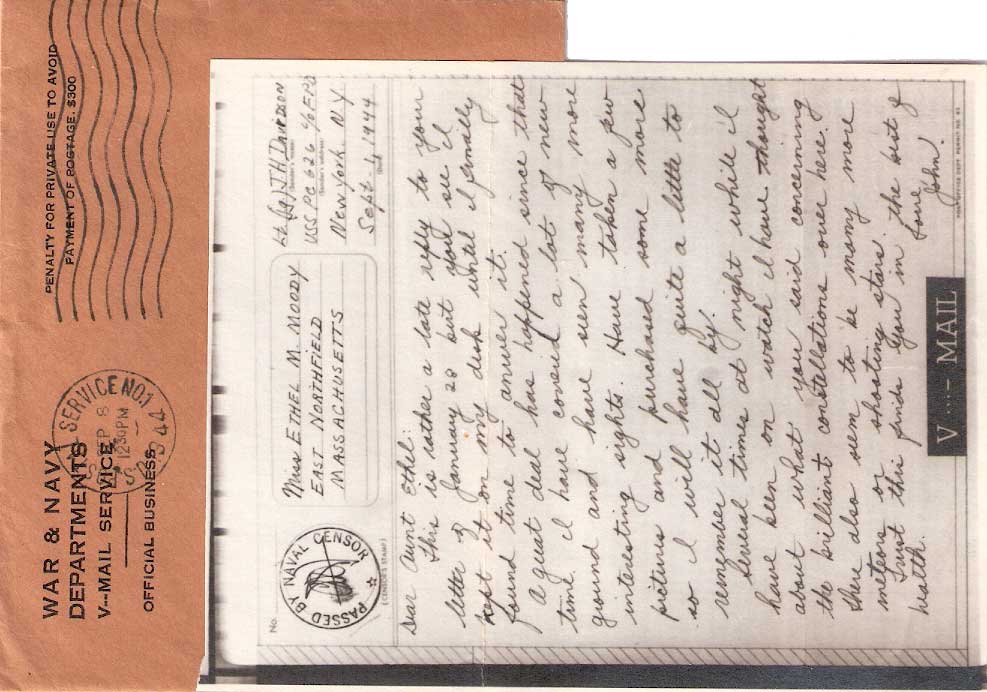 WAR & NAVY
DEPARTMENTS
V---MAIL SERVICE
OFFICIAL BUSINESS
PENALTY FOR PRIVATE USE TO AVOID
PAYMENT OF POSTAGE, $300
SERVICE NO. 1
SEP 8
12 30 PM
No.
PASSED BY NAVAL CENSOR
(CENSOR'S STAMP)
Miss ETHEL M. MOODY
EAST NORTHFIELD
MASSACHUSETTS
Lt (jg) J.H. DAVIDSON
(Sender's name)
USS PC 626 c/o FPO
(Sender's address)
New York, N.Y
Sept. 4 1944
(Date)
Dear Aunt Ethel:
This is rather a late reply to your
letter of January 28 but you see I
kept it on my desk until I finally
found time to answer it.
A great deal has happened since that
time. I have covered a lot of new
ground and have seen many more
interesting sights. Have taken a few
pictures and purchased some more
so I will have quite a little to
remember it all by.
Several times at night while I
have been on watch I have thought
about what you said concerning
the brilliant constellations over here.
There also seem to be many more
meteors or shooting stars.
Trust this finds you in the best of
health.
Love,
John.
V...- MAIL